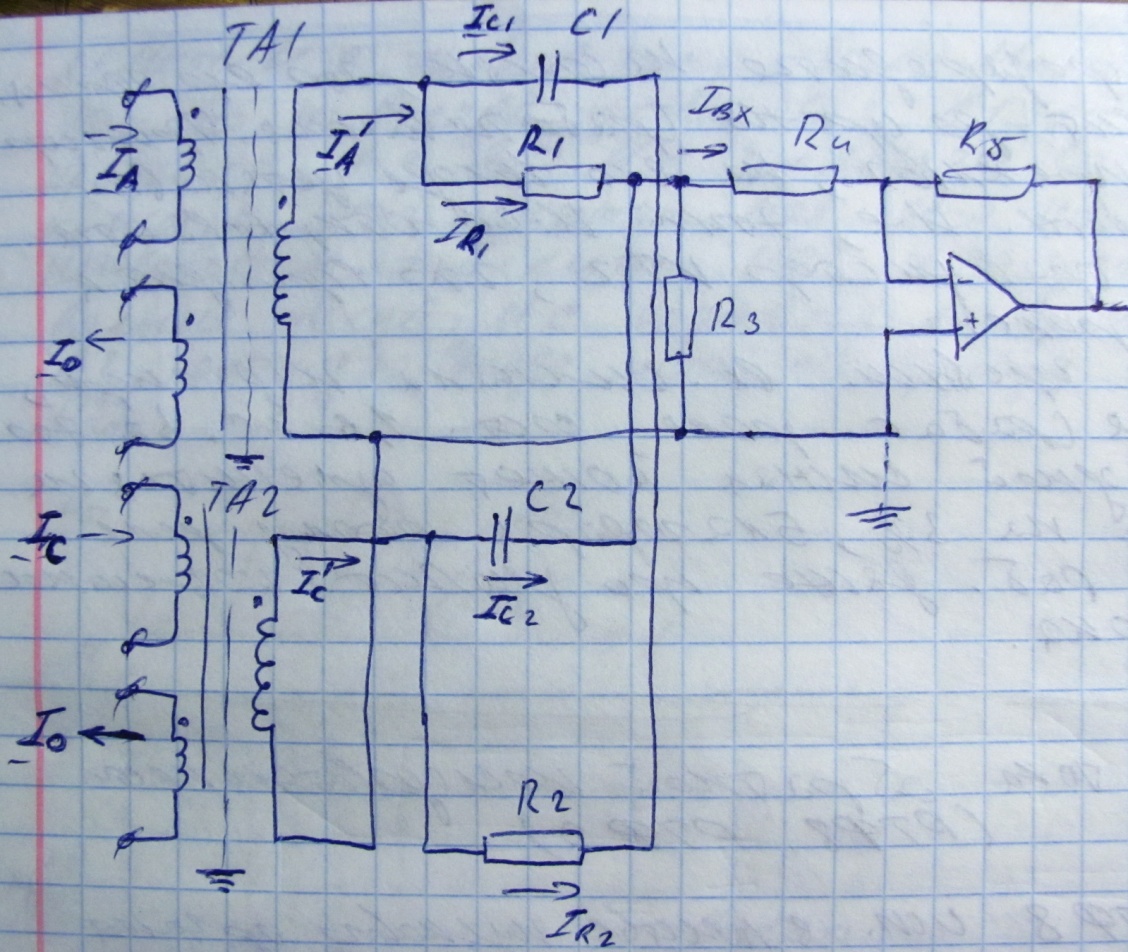 TA1
I_C1
C1
I_A
I_A'
R1
I_R1
I_Вх
R4
R5
I_0
R3
-
+
TA2
C2
I_C
I_C'
I_C2
I_0
R2
I_R2